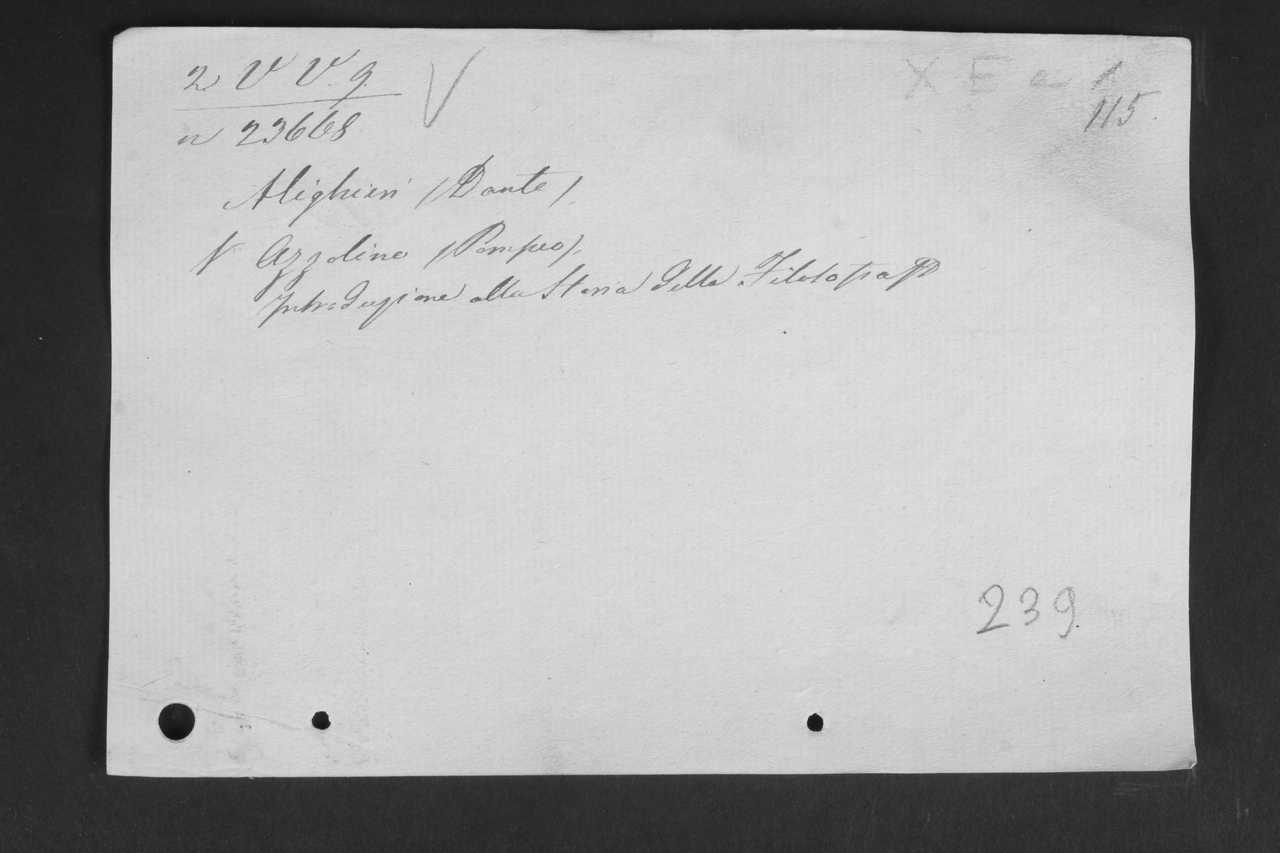 2 V V. g. V
X E a 1
115.
n 23668
Alighieri (Dante).
V Azzolino (Pompeo).
Introduzione alla Storia della Filosofia
239